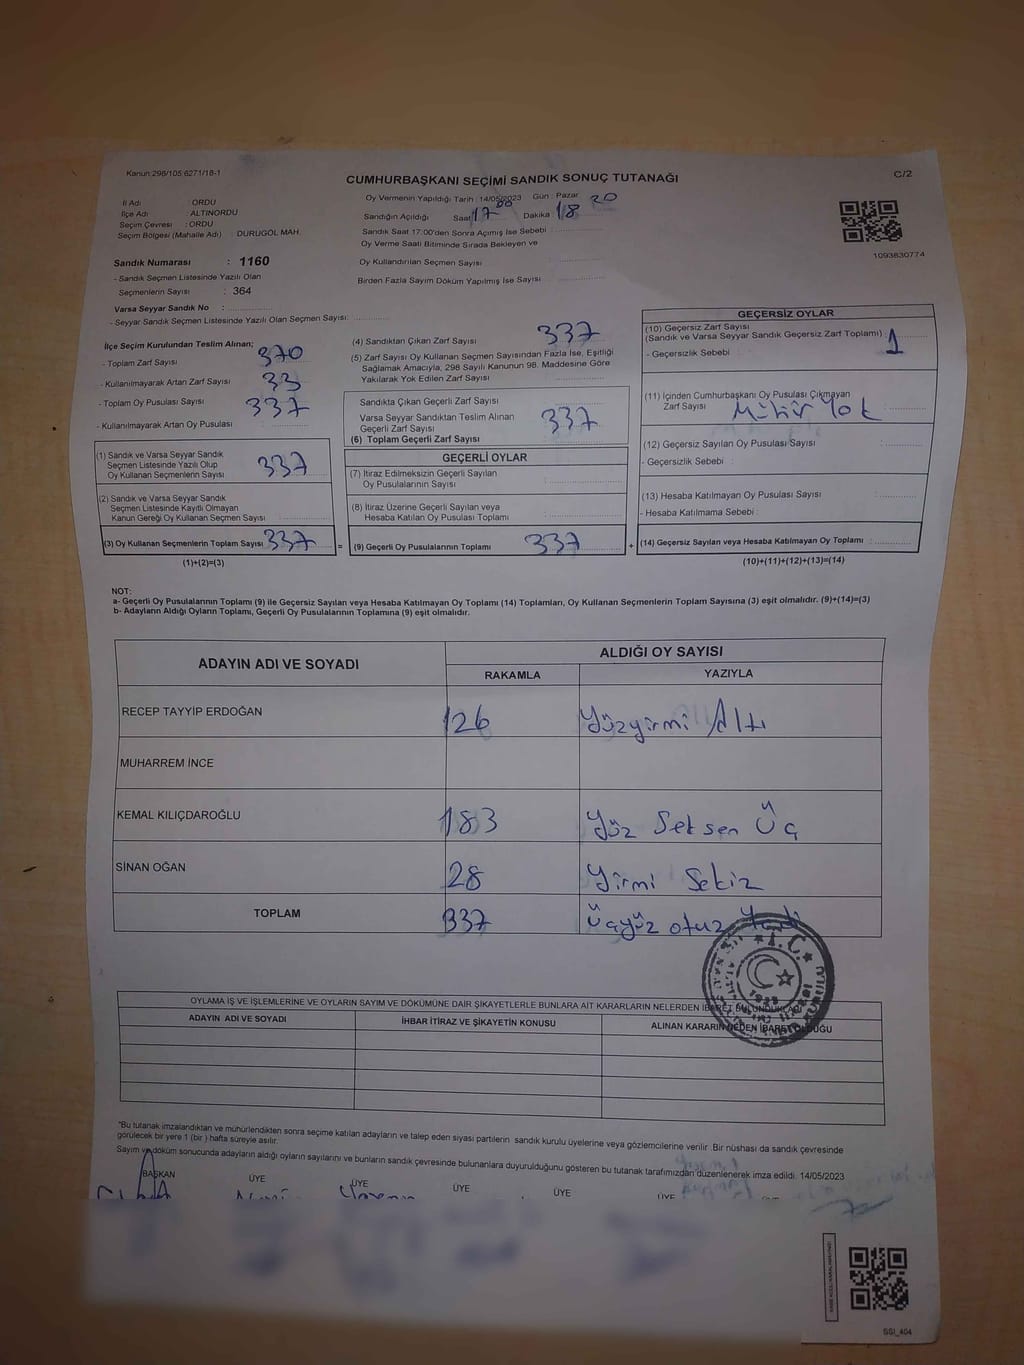 Kanun:298/105 6271/18-1
C/2
CUMHURBAŞKANI SEÇİMİ SANDIK SONUÇ TUTANAĞI
İl Adı : ORDU
İlçe Adı : ALTINORDU
Seçim Çevresi : ORDU
Seçim Bölgesi (Mahalle Adı) : DURUGÖL MAH.
Sandık Numarası : 1160
- Sandık Seçmen Listesinde Yazılı Olan
Seçmenlerin Sayısı : 364
Varsa Seyyar Sandık No :
- Seyyar Sandık Seçmen Listesinde Yazılı Olan Seçmen Sayısı:
Oy Vermenin Yapıldığı Tarih : 14/05/2023 Gün : Pazar
Sandığın Açıldığı Saat 17 00 Dakika 18 20
Sandık Saat 17:00'den Sonra Açımış İse Sebebi
Oy Verme Saati Bitiminde Sırada Bekleyen ve
Oy Kullandırılan Seçmen Sayısı
Birden Fazla Sayım Döküm Yapılmış İse Sayısı
1093830774
İlçe Seçim Kurulundan Teslim Alınan;
- Toplam Zarf Sayısı 370
- Kullanılmayarak Artan Zarf Sayısı 33
- Toplam Oy Pusulası Sayısı 337
- Kullanılmayarak Artan Oy Pusulası
(1) Sandık ve Varsa Seyyar Sandık
Seçmen Listesinde Yazılı Olup
Oy Kullanan Seçmenlerin Sayısı 337
(2) Sandık ve Varsa Seyyar Sandık
Seçmen Listesinde Kayıtlı Olmayan
Kanun Gereği Oy Kullanan Seçmen Sayısı
(3) Oy Kullanan Seçmenlerin Toplam Sayısı 337
(1)+(2)=(3)
=
(4) Sandıktan Çıkan Zarf Sayısı 337
(5) Zarf Sayısı Oy Kullanan Seçmen Sayısından Fazla İse, Eşitliği
Sağlamak Amacıyla, 298 Sayılı Kanunun 98. Maddesine Göre
Yakılarak Yok Edilen Zarf Sayısı
Sandıkta Çıkan Geçerli Zarf Sayısı
Varsa Seyyar Sandıktan Teslim Alınan
Geçerli Zarf Sayısı
(6) Toplam Geçerli Zarf Sayısı 337
GEÇERLİ OYLAR
(7) İtiraz Edilmeksizin Geçerli Sayılan
Oy Pusulalarının Sayısı
(8) İtiraz Üzerine Geçerli Sayılan veya
Hesaba Katılan Oy Pusulası Toplamı
(9) Geçerli Oy Pusulalarının Toplamı 337
+
GEÇERSİZ OYLAR
(10) Geçersiz Zarf Sayısı
(Sandık ve Varsa Seyyar Sandık Geçersiz Zarf Toplamı) : 1
- Geçersizlik Sebebi :
(11) İçinden Cumhurbaşkanı Oy Pusulası Çıkmayan
Zarf Sayısı Mühür Yok
(12) Geçersiz Sayılan Oy Pusulası Sayısı :
- Geçersizlik Sebebi :
(13) Hesaba Katılmayan Oy Pusulası Sayısı :
- Hesaba Katılmama Sebebi :
(14) Geçersiz Sayılan veya Hesaba Katılmayan Oy Toplamı :
(10)+(11)+(12)+(13)=(14)
NOT:
a- Geçerli Oy Pusulalarının Toplamı (9) ile Geçersiz Sayılan veya Hesaba Katılmayan Oy Toplamı (14) Toplamları, Oy Kullanan Seçmenlerin Toplam Sayısına (3) eşit olmalıdır. (9)+(14)=(3)
b- Adayların Aldığı Oyların Toplamı, Geçerli Oy Pusulalarının Toplamına (9) eşit olmalıdır.
ADAYIN ADI VE SOYADI
ALDIĞI OY SAYISI
RAKAMLA YAZIYLA
RECEP TAYYİP ERDOĞAN 126 Yüzyirmi Altı
MUHARREM İNCE
KEMAL KILIÇDAROĞLU 183 Yüz Seksen Üç
SİNAN OĞAN 28 Yirmi Sekiz
TOPLAM 337 Üçyüz otuz Yedi
T.C.
OYLAMA İŞ VE İŞLEMLERİNE VE OYLARIN SAYIM VE DÖKÜMÜNE DAİR ŞİKAYETLERLE BUNLARA AİT KARARLARIN NELERDEN İBARET BULUNDUKLARI
ADAYIN ADI VE SOYADI İHBAR İTİRAZ VE ŞİKAYETİN KONUSU ALINAN KARARIN NEDEN İBARET OLDUĞU
*Bu tutanak imzalandıktan ve mühürlendikten sonra seçime katılan adayların ve talep eden siyasi partilerin sandık kurulu üyelerine veya gözlemcilerine verilir. Bir nüshası da sandık çevresinde
görülecek bir yere 1 (bir ) hafta süreyle asılır.
Sayım ve döküm sonucunda adayların aldığı oyların sayılarını ve bunların sandık çevresinde bulunanlara duyurulduğunu gösteren bu tutanak tarafımızdan düzenlenerek imza edildi. 14/05/2023
BAŞKAN ÜYE ÜYE ÜYE ÜYE ÜYE ÜYE
SSI_404